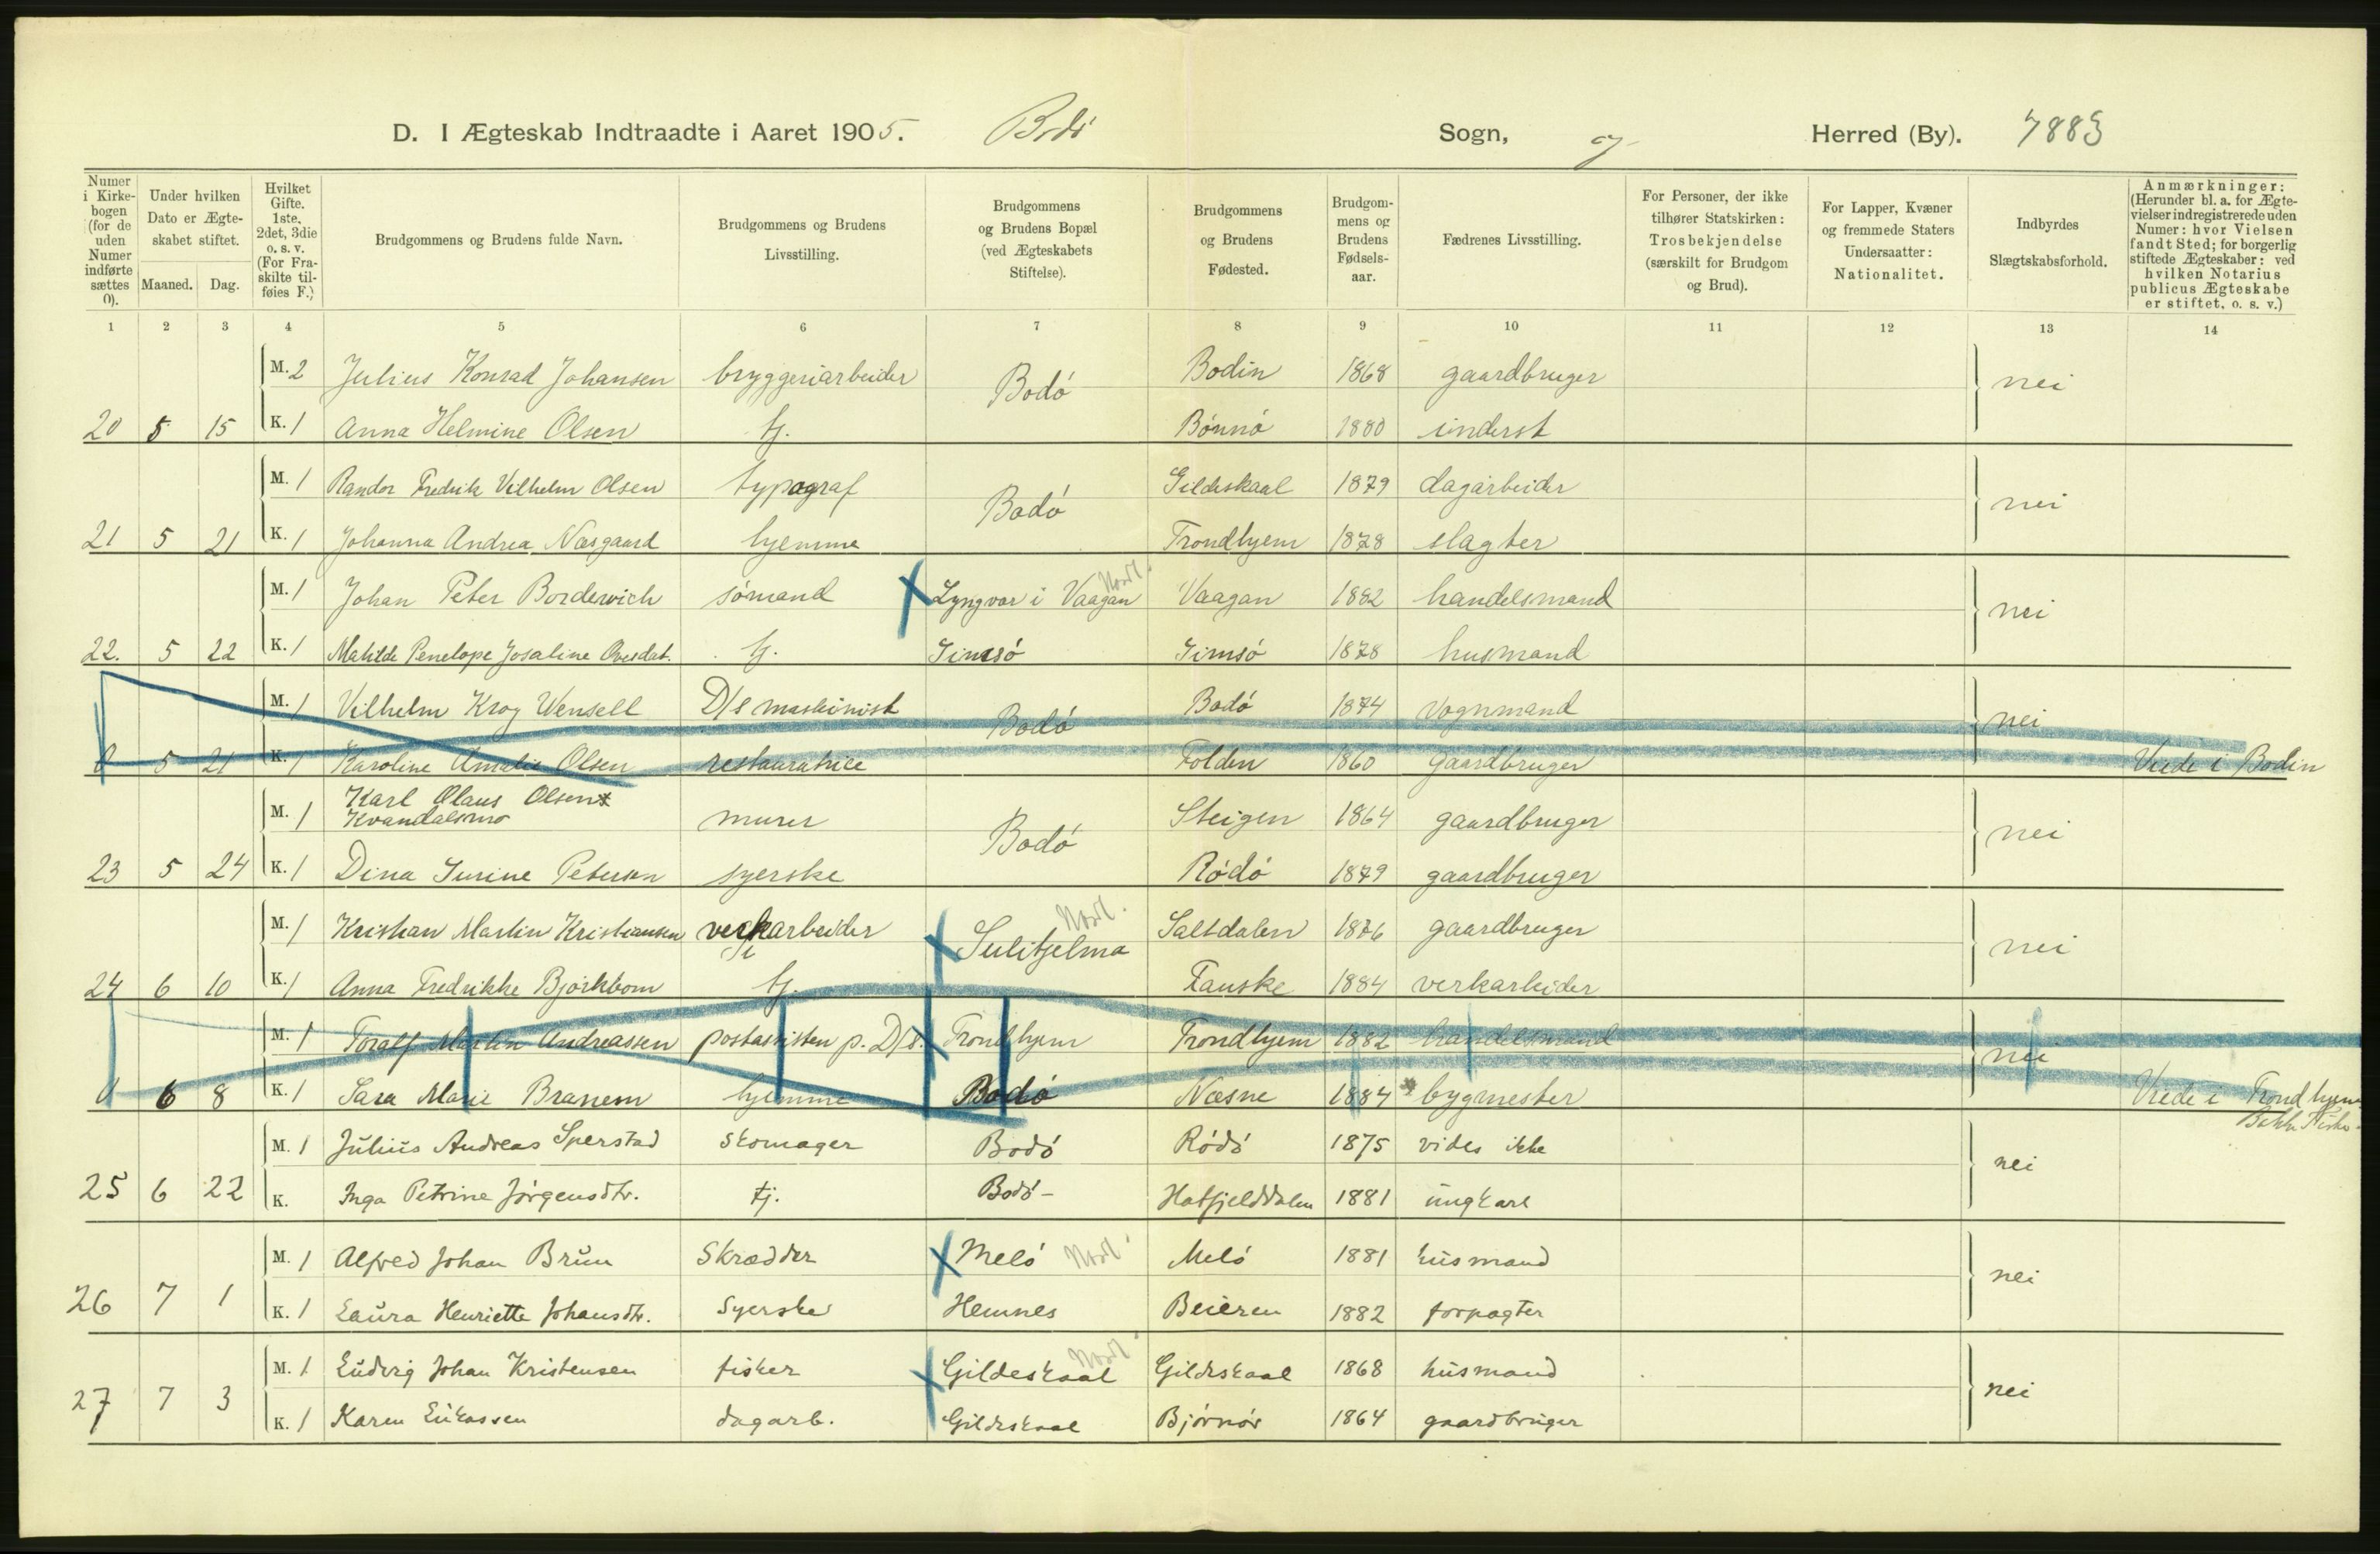 D. I Ægteskab Indtraadte i Aaret 1905. Bodö Sogn, og Herred (By). 7883
Numer i Kirke-bogen (for de uden Numer indførte sættes 0).
Under hvilken Dato er Ægte-skabet stiftet.
Maaned. Dag.
Hvilket Gifte. 1ste, 2det, 3die o. s. v. (For Fra-skilte til-føies F.)
Brudgommens og Brudens fulde Navn.
Brudgommens og Brudens Livsstilling.
Brudgommens og Brudens Bopæl (ved Ægteskabets Stiftelse).
Brudgommens og Brudens Fødested.
Brudgom-mens og Brudens Fødsels-aar.
Fædrenes Livsstilling.
For Personer, der ikke tilhører Statskirken: Trosbekjendelse (særskilt for Brudgom og Brud).
For Lapper, Kvæner og fremmede Staters Undersaatter: Nationalitet.
Indbyrdes Slægtskabsforhold.
Anmærkninger: (Herunder bl. a. for Ægte-vielser indregistrerede uden Numer: hvor Vielsen fandt Sted; for borgerlig stiftede Ægteskaber: ved hvilken Notarius publicus Ægteskabe er stiftet, o. s. v.)
1 2 3 4 5 6 7 8 9 10 11 12 13 14
M. 2 Julius Konrad Johansen bryggeriarbeider Bodö Bodin 1868 gaardbruger nei
20 5 15 K. 1 Anna Helmine Olsen tj. Bönnö 1880 inderst
M. 1 Randor Fredrik Vilhelm Olsen typograf Bodö Gildeskaal 1879 dagarbeider nei
21 5 21 K. 1 Johanna Andrea Næsgaard hjemme Trondhjem 1878 slagter
M. 1 Johan Peter Bordervich sömand Lyngvær i Vaagan Nordl. Vaagan 1882 handelsmand nei
22. 5 22 K. 1 Matilde Penelope Josaline Ovesdat. tj. Gimsö Gimsö 1878 husmand
M. 1 Vilhelm Krog Wensell D/s maskinist Bodö Bodö 1874 vognmand nei
0 5 21 K. 1 Karoline Amalie Olsen restauratrice Folden 1860 gaardbruger Viede i Bodin
M. 1 Karl Olaus Olsen*
Kvandalsmo murer Bodö Steigen 1864 gaardbruger nei
23 5 24 K. 1 Dina Surine Petersen syerske Rödö 1879 gaardbruger
M. 1 Kristian Martin Kristiansen verkarbeider Sulitjelma Nordl. Saltdalen 1876 gaardbruger nei
24 6 10 K. 1 Anna Fredrikke Björkbom tj. Fauske 1884 verkarbeider
M. 1 Toralf Martin Andreassen postassistent p. D/s. Trondhjem Trondhjem 1882 handelsmand nei
0 6 8 K. 1 Sara Marie Branem hjemme Bodö Næsne 1884 * bygmester Viede i Trondhjem
M. 1 Julius Andreas Sperstad skomager Bodö Rödö 1875 vides ikke nei
25 6 22 K. Inga Petrine Jörgensdtr. tj. Bodö - Hatfjelddalen 1881 ungkarl
M. 1 Alfred Johan Brun Skrædder Melö Nordl. Melö 1881 husmand nei
26 7 1 K. 1 Laura Henriette Johansdtr. Syerske Hemnes Beieren 1882 forpagter
M. 1 Ludvig Johan Kristensen fisker Gildeskaal Nordl. Gildeskaal 1868 husmand nei
27 7 3 K. 1 Karen Lukassen dagarb. Gildeskaal Björnör 1864 gaardbruger